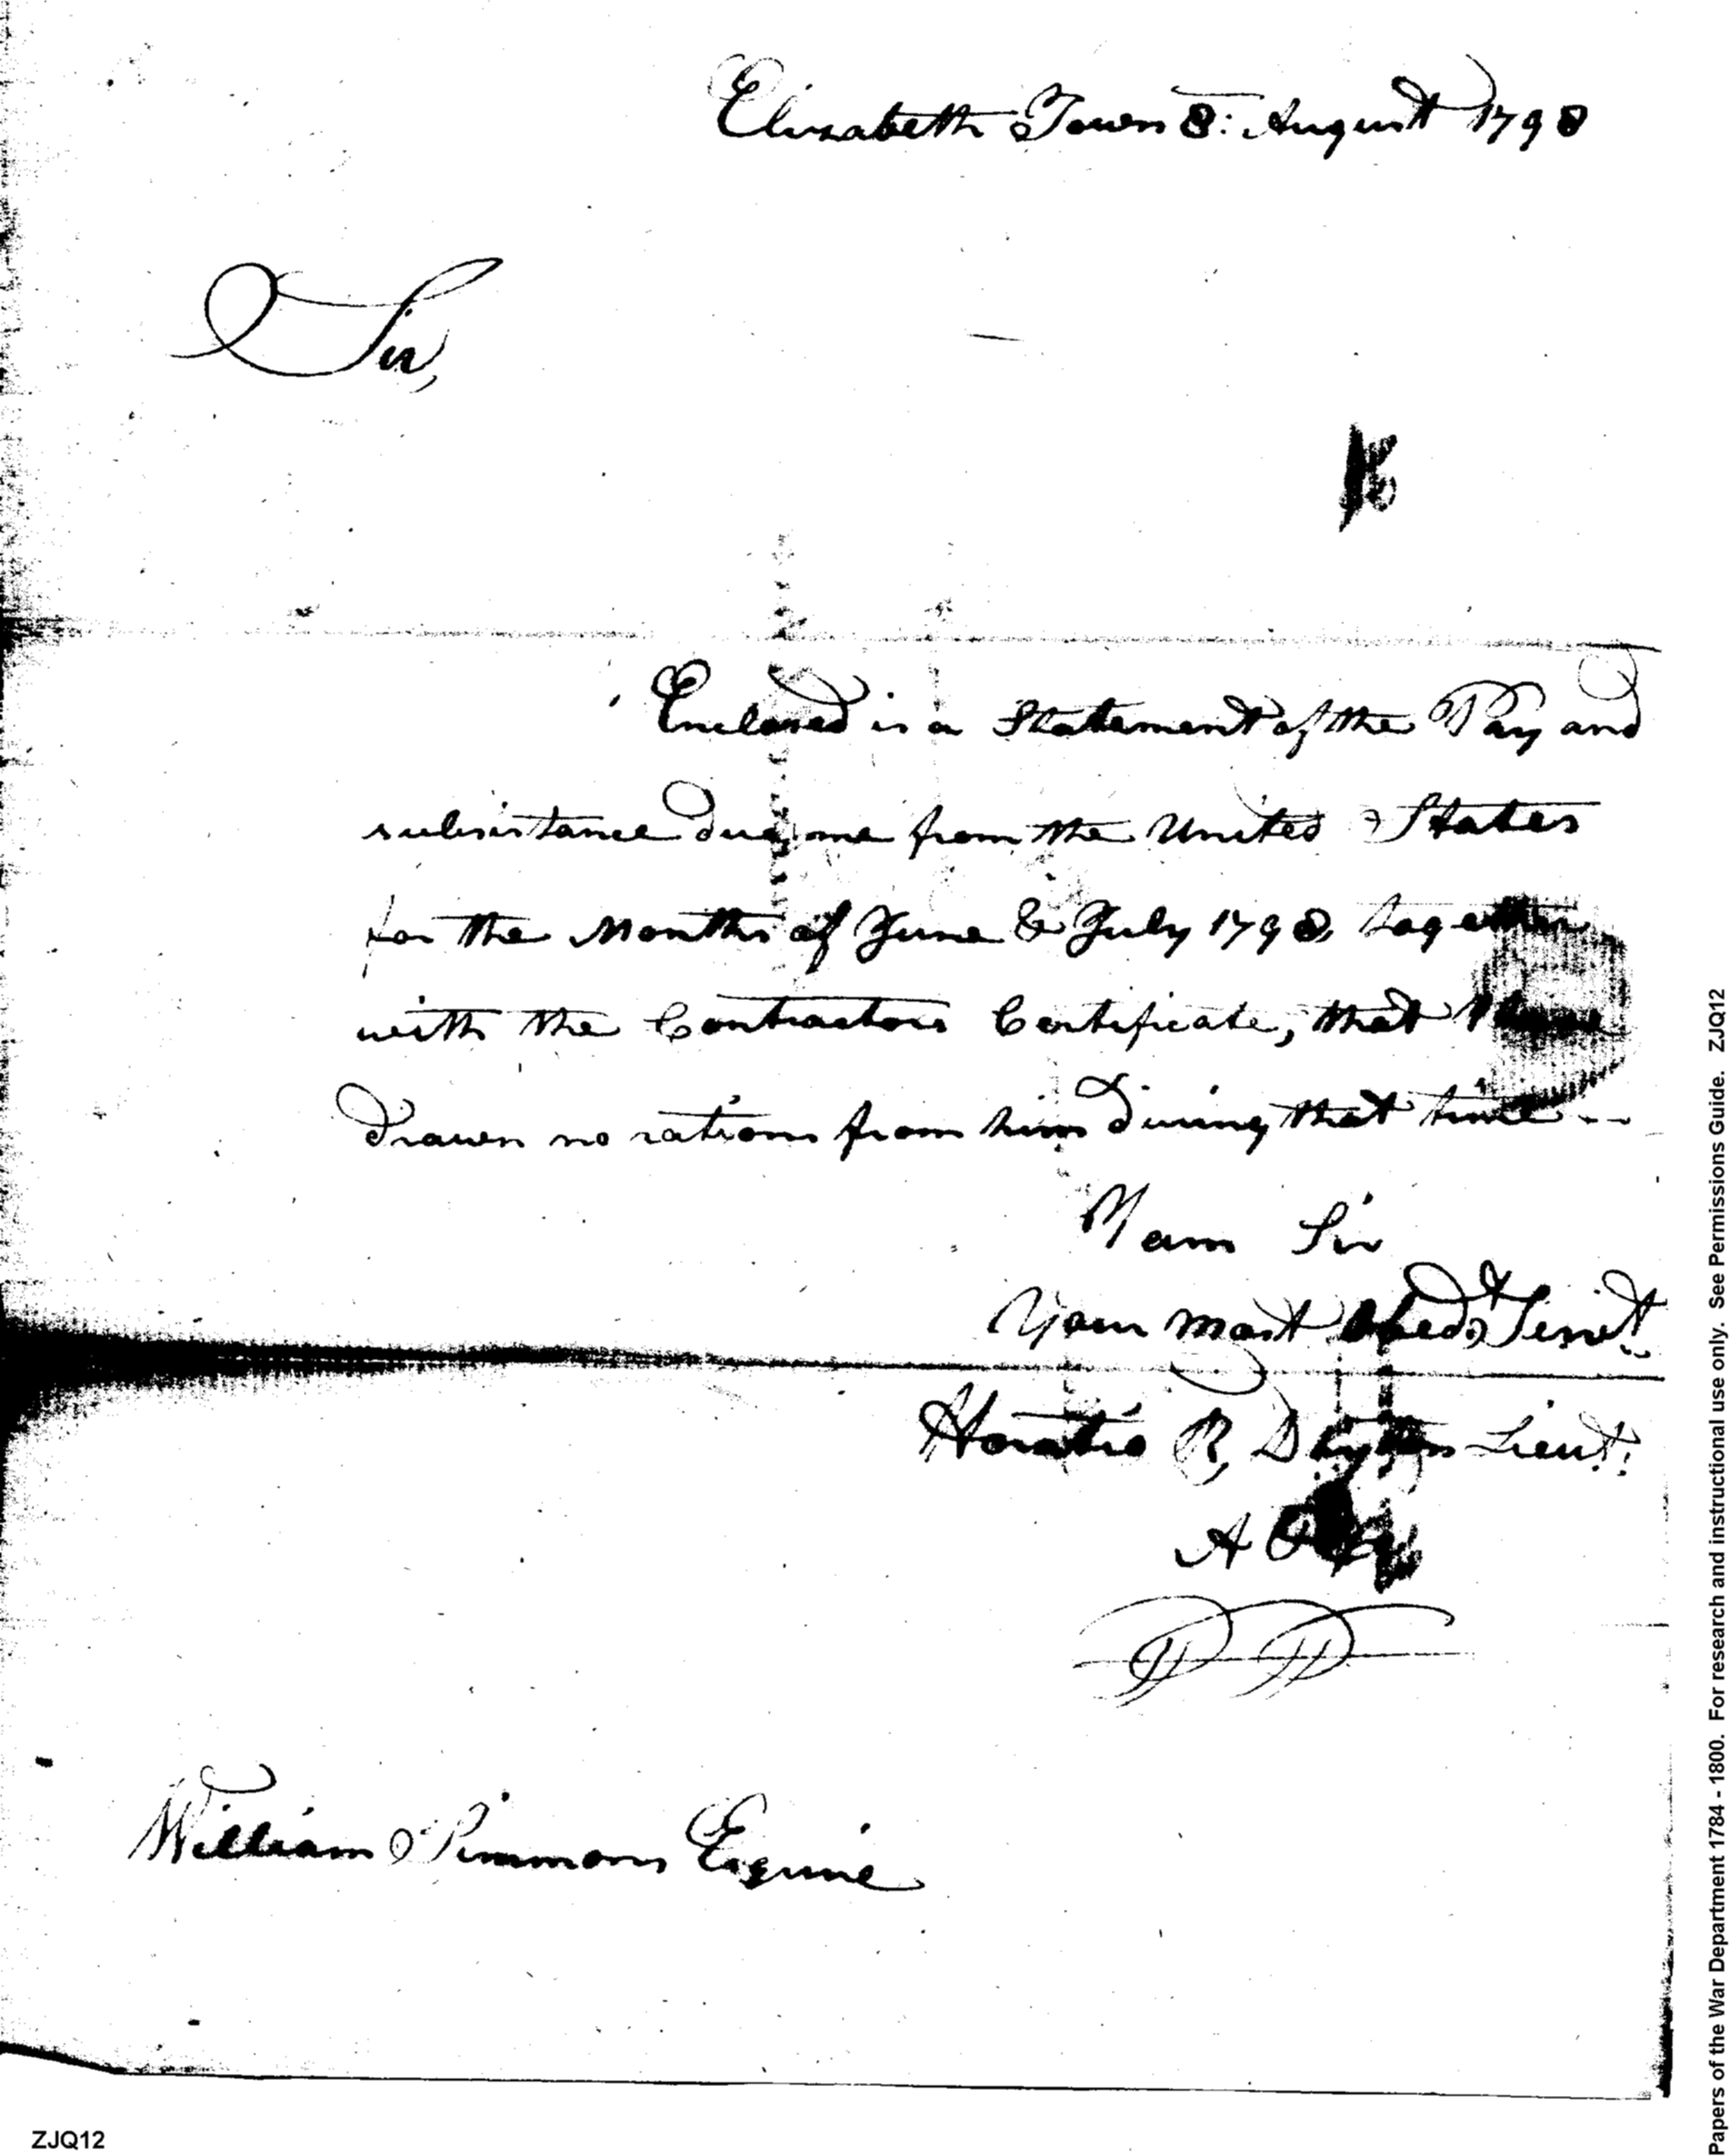 Elizabeth Town 8: August 1798
Sir,
Enclosed is a Statement of the Pay and
subsistance due me from the United States
for the Months of June & July 1798, together
with the Contractors Certificate, that I have
drawn no rations from him during that time --
I am Sir
Your most Obedt Servt
Horatio R, Dayton Lieut:
A
William Simmons Esquire
ZJQ12
Papers of the War Department 1784 - 1800. For research and instructional use only. See Permissions Guide. ZJQ12